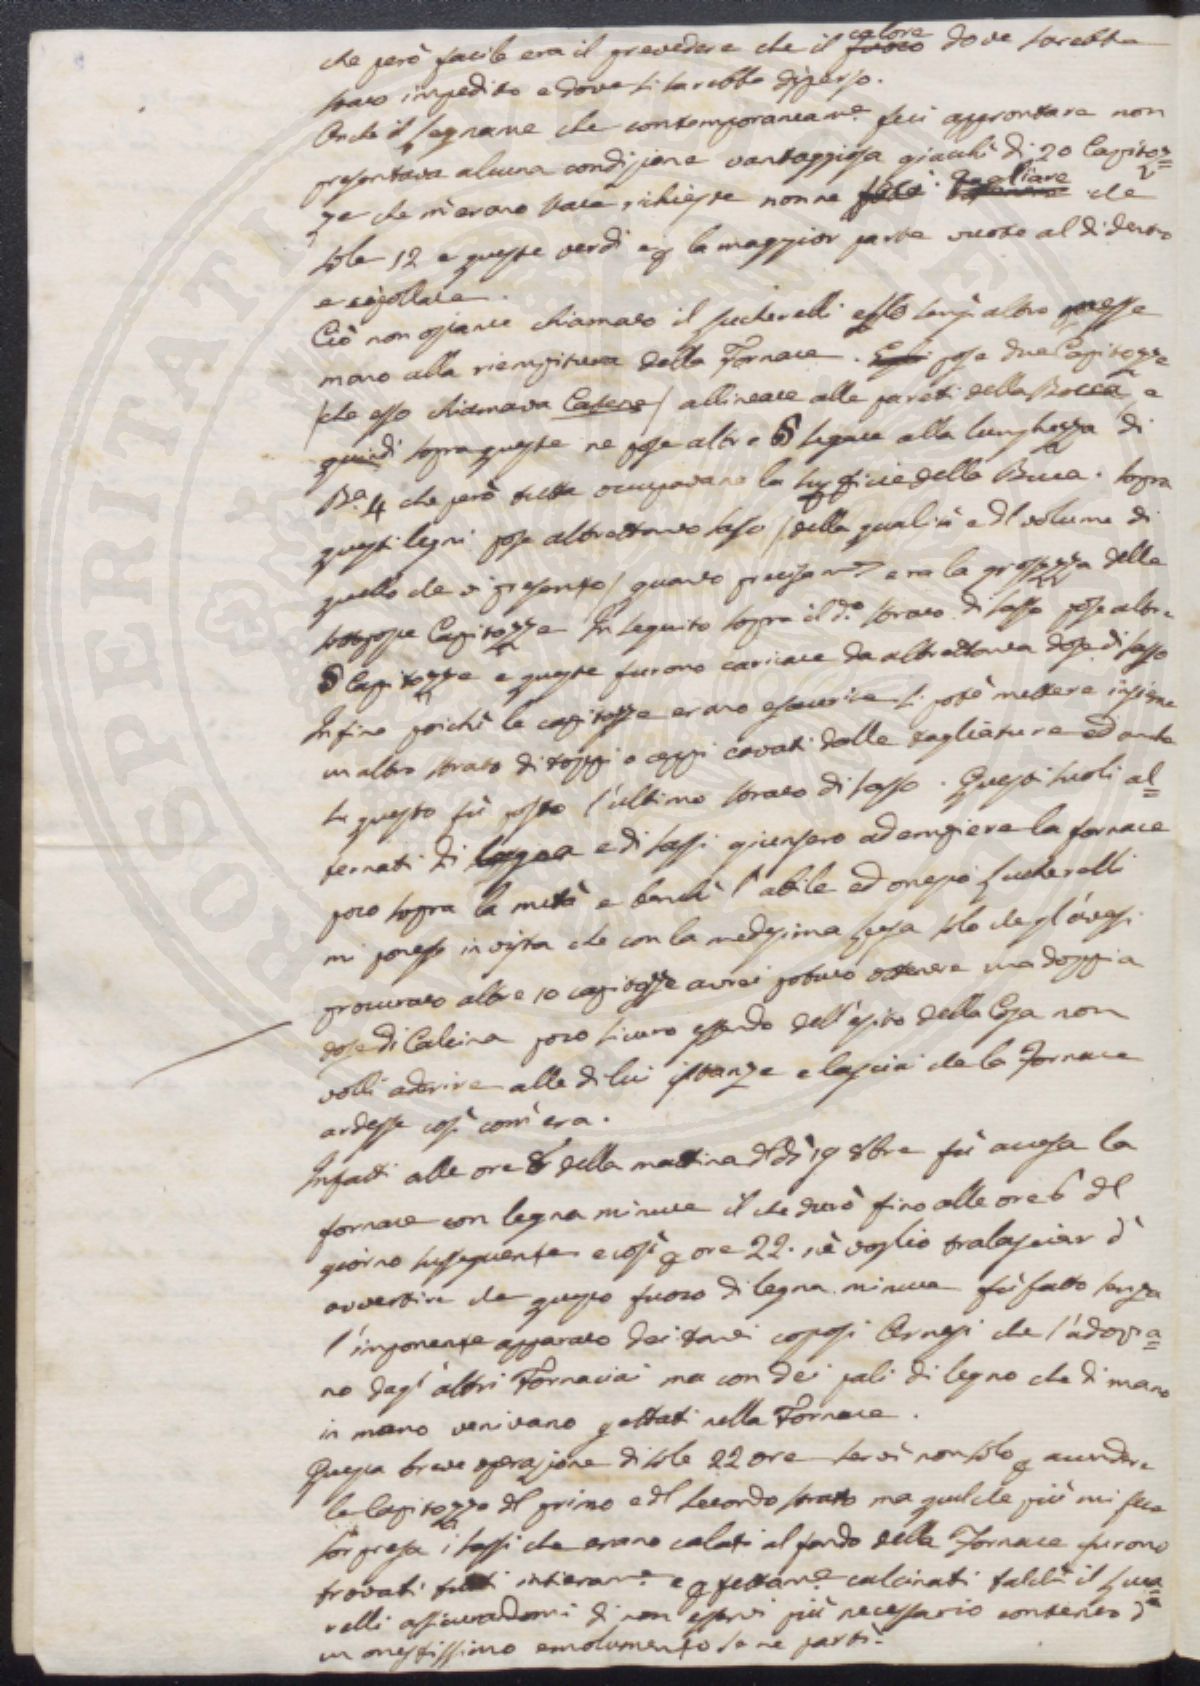 che però facile era il prevedere che il calore fuoco dove sarebbe
stato impedito e dove si sarebbe disperso.
Anche il legname che contemporaneam.e feci approntare non
presentava alcuna condizione vantaggiosa giacchè di 20 Capitoz=
ze che m'erano state richieste non ne feci tagliare che
sole 12 e queste verdi e p la maggior parte vuote al di dentro
e
Ciò non ostante chiamato il Sucherelli esso senz'altro messe
mano alla riempitura della Fornace. Egli pose due Capitozze
/che esso chiamava Catene/ allineate alle pareti della Bocca e
quindi sopra queste ne pose altre 6 segate alla lunghezza di
B.a 4 che però tutta occupavano la superficie della Buca. Sopra
questi legni pose altrettanto sasso /della qualità e del volume di
quello che vi presento/ quanto precisam.e era la grossezza delle
sottoposte Capitozze In seguito sopra il d.o strato di sasso pose altre
6 Capitozze e queste furono caricate da altrettanta dose di sasso
Infine poichè le capitozze erano esaurite si potè mettere insieme
un altro strato di toppi o ceppi cavati dalle tagliature ed anche
su questo fù posto l'ultimo strato di sasso. Questi suoli al=
ternati di legna e di sassi giunsero ad empiere la fornace
poco sopra la metà e benchè l'abile ed onesto Sucherelli
mi ponesse in vista che con la medesima spesa solo che gl'avessi
procurato altre 10 capitozze avrei potuto ottenere una doppia
dose di Calcina poco sicuro essendo dell'esito della Cosa non
volli aderire alle di lui istanze e lasciai che la Fornace
ardesse così com'era.
Infatti alle ore 8 della mattina del dì 19 8bre fù accesa la
fornace con legna minuta il che durò fino alle ore 6 del
giorno susseguente e così p ore 22. nè voglio tralasciar d'
avvertire che questo fuoco di legna minuta fù fatto senza
l'imponente apparato dei tanti Arnesi che s'adopra=
no dagl'altri Fornaciai ma con dei pali di legno che di mano
in mano venivano gettati nella Fornace.
Questa breve operazione di sole 22 ore servì non solo p accendere
le Capitozze del primo e del secondo strato ma quel che più mi fece
sorpresa i sassi che erano calati al fondo della Fornace furono
trovati tutti interam.e e pfettam.e calcinati talchè il Suche=
relli assicurandomi di non esservi più necessario contento d'
un onestissimo emolumento se ne partì.